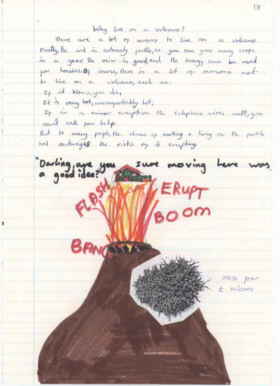 Why live on a volcano?
There are a lot of reasons to live on a volcano.
Firstly, the soil is extremely fertile, so you can grow many crops
in a year. The view is good, and the energy can be used
you heat. Of course, there is a lot of reasons not
to live on a volcano, such as:
If it blows, you die,
It is very hot, uncomfortably hot,
If in a minor eruption the telephone wires melt, you
could not get help.
But to many people, the chance of making a living on the
soil outweighs the risk of it erupting.
"Darling, are you sure moving here was
a good idea?"
FLASH
ERUPT
BOOM
BANG